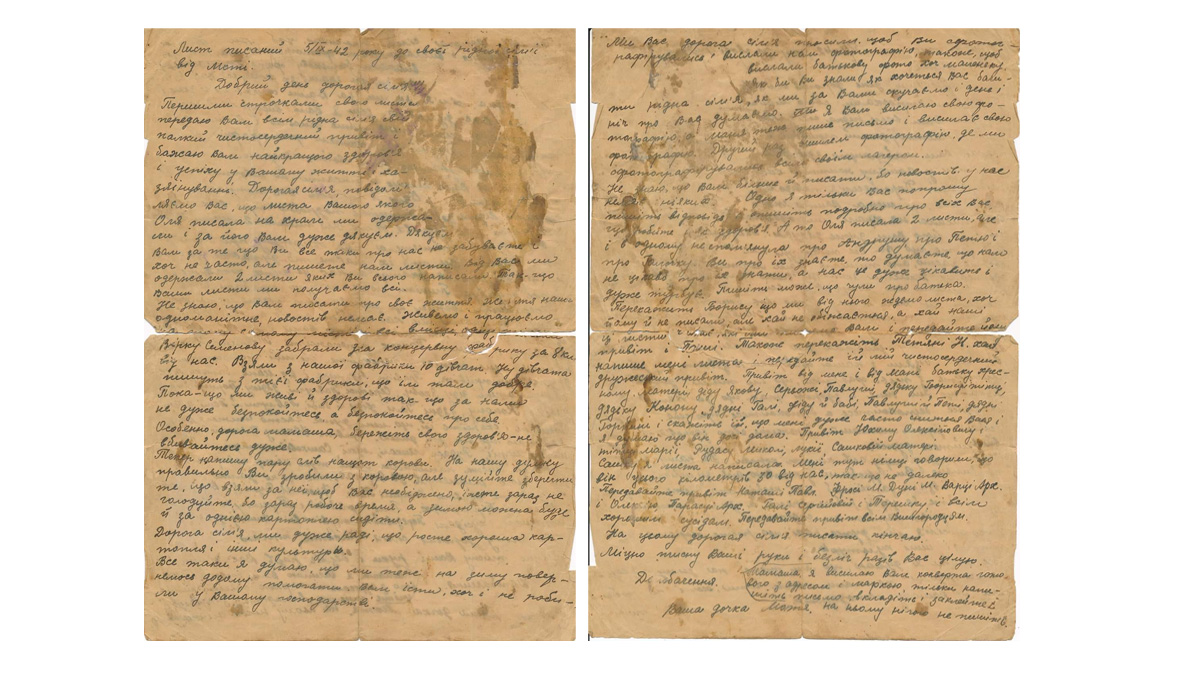 Лист писаний 5/IX-42 року до своєї рідної сім'ї
від Моті.
Добрий день дорогая сім'я!
Першими строчками свого листа
передаю Вам всім рідна сім'я свій
палкий чистосердечний привіт і
бажаю Вам найкращого здоров'я
і успіху у Вашому житті і ха-
зяйнуванні. Дорогая сім'я повідом-
ляємо Вас, що листа Вашого якого
Оля писала на краю ми одержи-
ли і за його Вам дуже дякуєм. Дякуєм
Вам за те що Ви все таки про нас не забуваєте і
хоч не часто, але пишете нам листи. Від Вас ми
одержали 2 листи яких Ви всього написали так, що
Ваши листи ми получаємо всі.
Не знаю, що Вам писати про своє життя. Життя наше
одноманітне, новостів немає. Живемо і працюємо
Вірку Семенову забрали за концервну фабрику за 8 км
від нас. Взяли з нашої фабрики 10 дівчат. Ну дівчата
пишуть з тієї фабрики, що їм там добре.
Пока-що ми живі й здорові так що за нами
не дуже безпокойтеся а безпокойтеся про себе.
Особенно, дорога мамаша, бережіть своє здоров'я-не
вбивайтеся дуже.
Тепер напишу пару слів нащот корови. На нашу думку
правильно Ви зробили з коровою, але зумійте зберегти
те, що взяли за неї, щоб Вас необіжено, і оте зараз не
голодуйте, бо зараз робоче время, а зимою можна буде
й за однією картоплею сидіти.
Дорога сім'я, ми дуже раді, що росте хороша кар-
топля і инші культури.
Все таки я думаю, що ми теж на зиму повер-
немось додому помогати Вам їсти, хоч і не роби-
ли у Вашому господарстві.
Ми Вас, дорога сім'я просимо, щоб Ви сфотог-
рафірувались і вислали нам фотографію, також, щоб
вислали батькову фото хоч маленьку.
Як би Ви знали як хочеться Вас бачи-
ти рідна сім'я, як ми за Вами скучаємо і день і
ніч про Вас думаємо. Я Вам висилаю свою фо-
тографію, а Маня теж пише письмо і висилає свою
фотографію. Другий раз пришлем фотографію, де ми
сфотографірувались всим своїм лагером.
Не знаю, що Вам більше й писати, бо новостів у нас
немає ніяких. Одно я тільки Вас попрошу
пишіть відповідь і опишіть подробно про всіх Вас,
що робите і як здоров'я. А то Оля писала 2 листи, але
і в одному не спом'янула про Андрушу про Петю і
про Галочку. Ви про їх знаєте, то думаєте що нам
не цікаво про їх знати, а нас це дуже цікавить і
дуже турбує. Пишіть може, що чули про батька.
Перекажіть Борису що ми від нього ждемо листа, хоч
йому й не писали, але хай не обіжається, а хай нам
привіт і Груні. Також перекажіть Тетяні Н. хай
напише мені листа і передайте їй мій чистосердечний
дружеський привіт. Привіт від мене і від Мані батьку хрес-
ному, матері, діду Якову, Сергієві, Павлуші, дядьку Порифітіту,
дядіку Конону, дядні Галі, діду й бабі, Павлуші й Поті, дядн
Горпині і скажіть їй, що мені дуже часто сниться Ваня і
я думаю що він дог дома. Привіт Юхиму Олексійовичу і
тітці Марії, Дудас, школі, Лукії, Сашковій матері.
Сашко й листа написала. Мені тут німці говорили, що
він одного кілометрів 30 від нас, так що не далеко.
Передавайте привіт Наташі Павл. Фросі М. Дуні М. Варці Арк.
і Олексію, Парасці Арк. Галі Сергійовій і Терешку, і всім
хорошим сусідам. Передавайте привіт всім Вишгородцям.
На цьому дорогая сім'я писати кінчаю.
Міцно тисну Ваші руки і безліч разів Вас цілую.
До бачення.
Мамаша, я висилаю Вам конверта гото-
вого з адресом і маркою, тільки напи-
шіть письмо вкладіть і заклейте і
на ньому нічого не пишіть.
Ваша дочка Мотя.